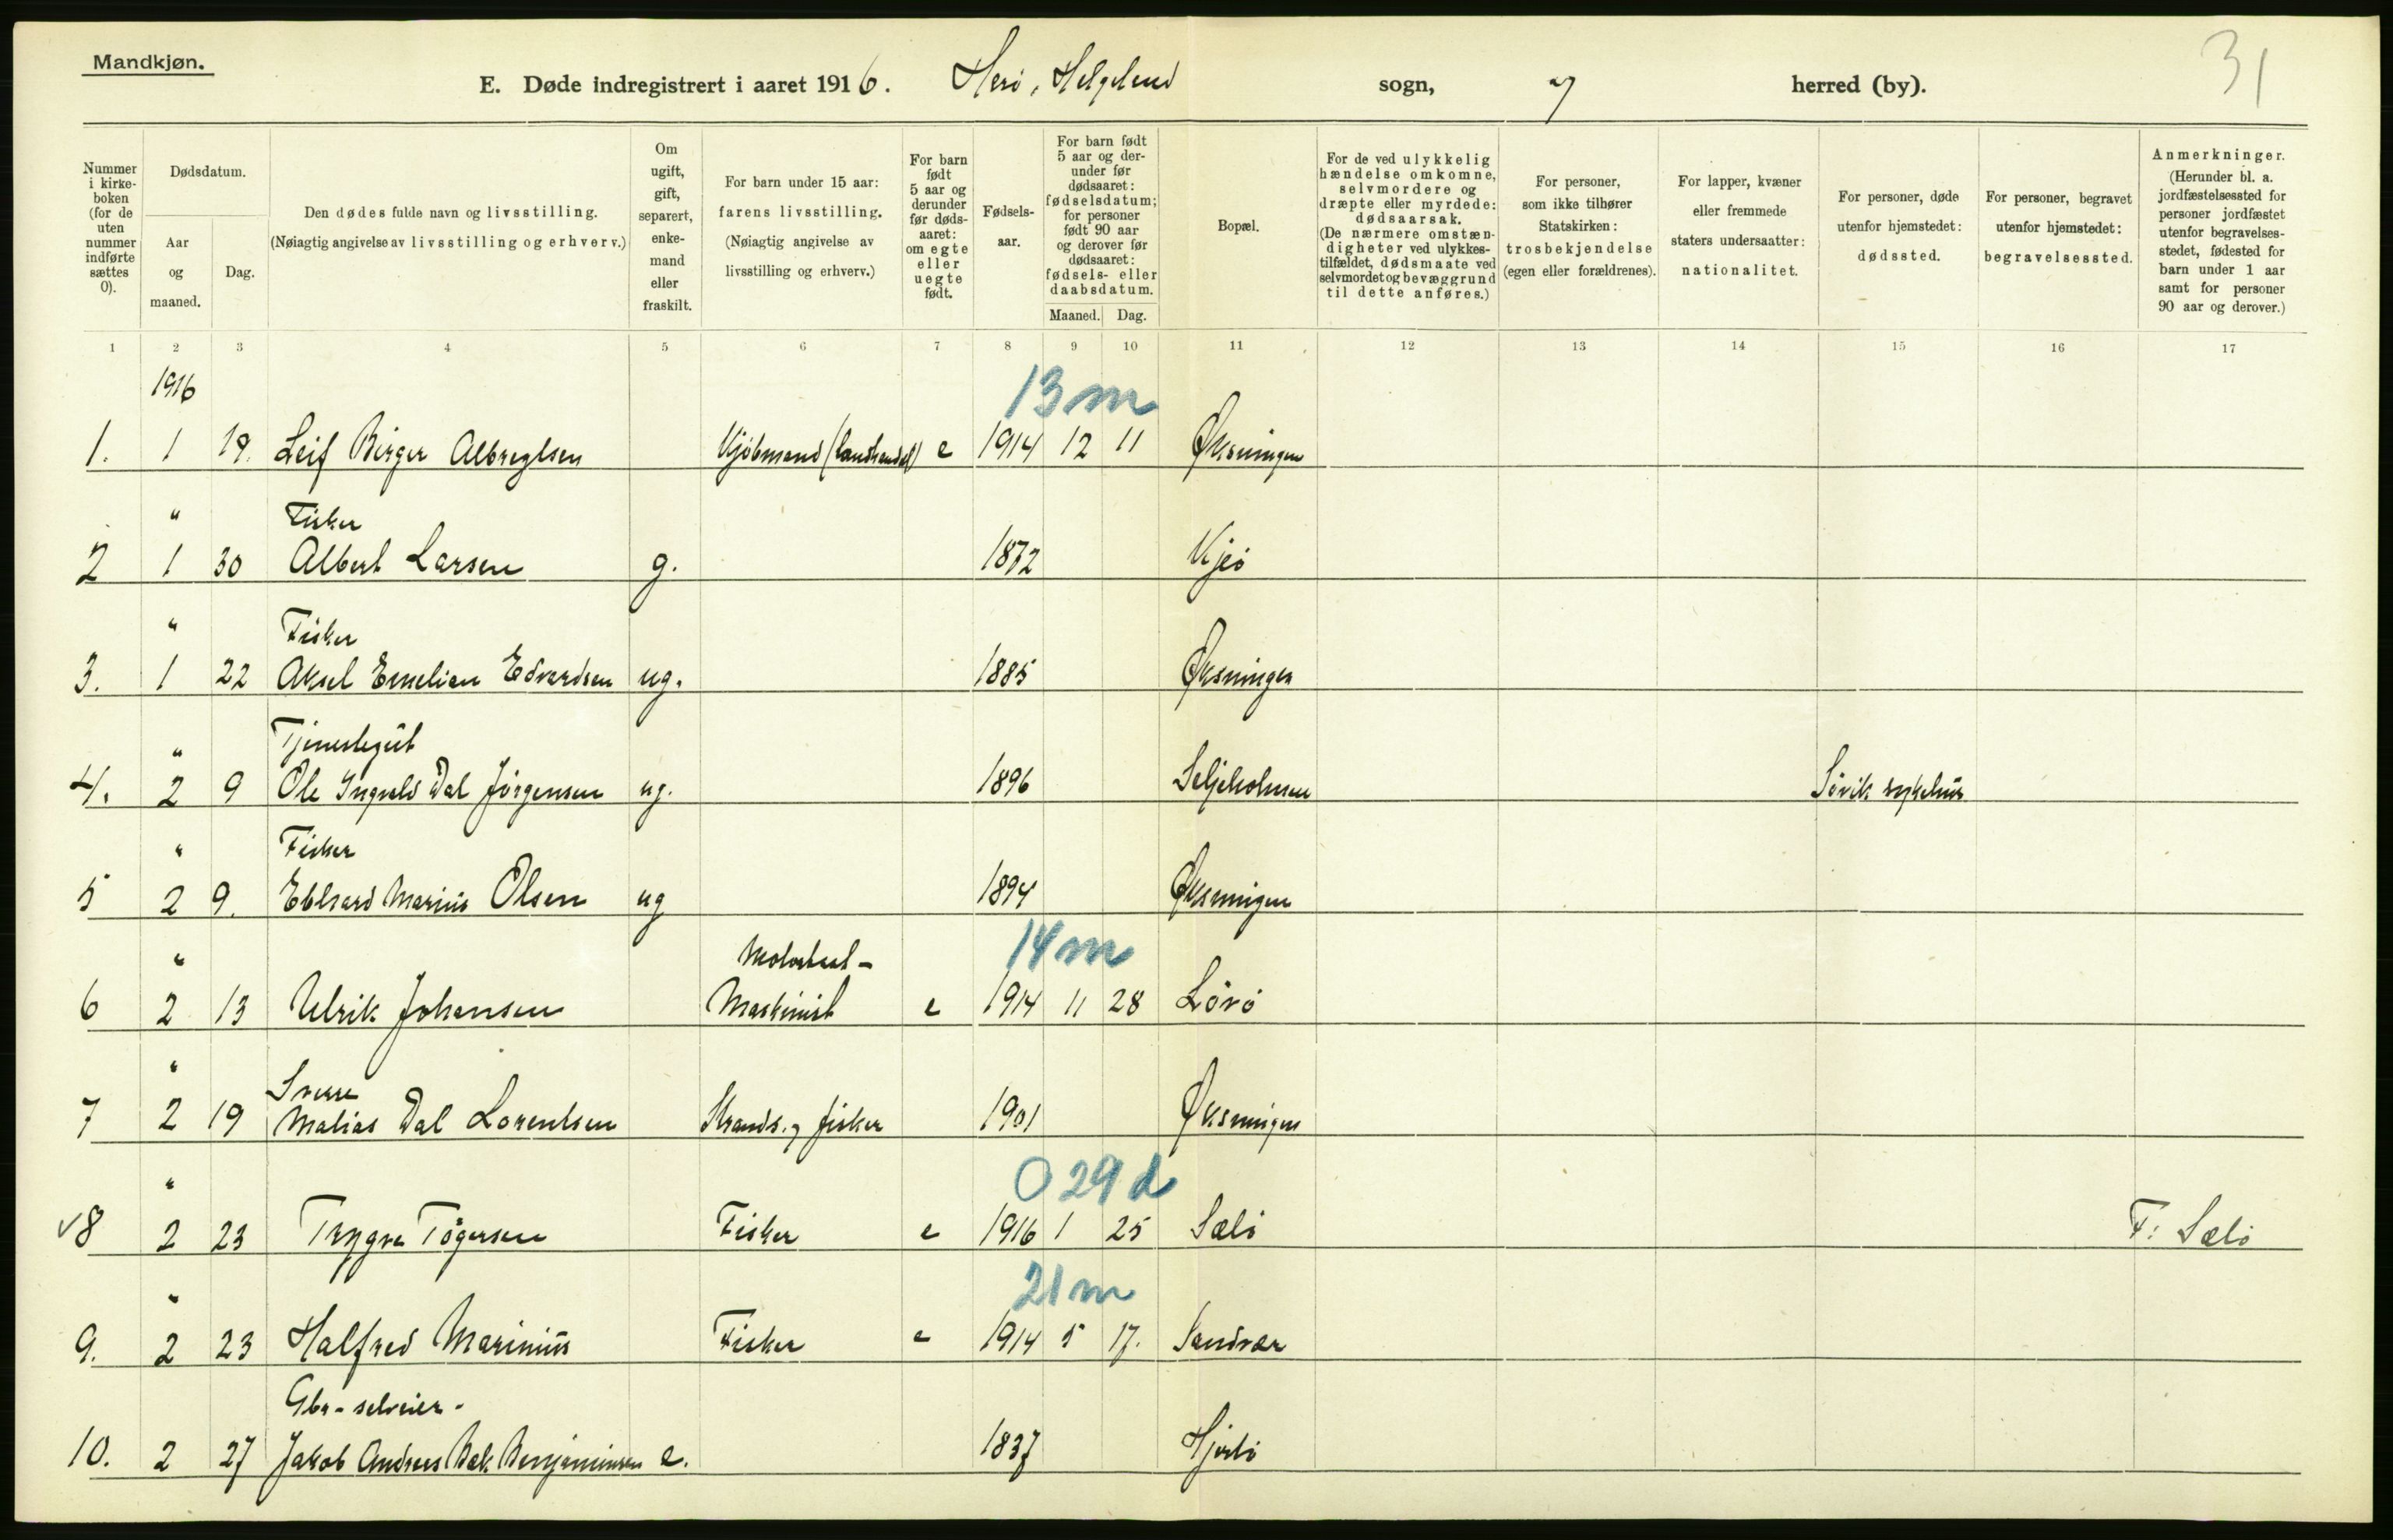 Mandkjøn.
31
E. Døde indregistrert i aaret 1916. Herö, Helgeland sogn, og herred (by).
Nummer i kirkeboken (for de uten nummer indførte sættes 0).
Dødsdatum.
Aar og maaned.
Dag.
Den dødes fulde navn og livsstilling.
(Nøiagtig angivelse av livsstilling og erhverv.)
Om ugift, gift, separert, enkemand eller fraskilt.
For barn under 15 aar: farens livsstilling.
(Nøiagtig angivelse av livsstilling og erhverv.)
For barn født 5 aar og derunder før dødsaaret: om egte eller uegte født.
Fødselsaar.
For barn født 5 aar og derunder før dødsaaret: fødselsdatum; for personer født 90 aar og derover før dødsaaret: fødsels- eller daabsdatum.
Maaned. Dag.
Bopæl.
For de ved ulykkelig hændelse omkomne, selvmordere og dræpte eller myrdede: dødsaarsak.
(De nærmere omstændigheter ved ulykkestilfældet, dødsmaate ved selvmordet og bevæggrund til dette anføres.)
For personer, som ikke tilhører Statskirken: trosbekjendelse (egen eller forældrenes).
For lapper, kvæner eller fremmede staters undersaatter: nationalitet.
For personer, døde utenfor hjemstedet: dødssted.
For personer, begravet utenfor hjemstedet: begravelsessted.
Anmerkninger.
(Herunder bl. a. jordfæstelsessted for personer jordfæstet utenfor begravelsesstedet, fødested for barn under 1 aar samt for personer 90 aar og derover.)
1 2 3 4 5 6 7 8 9 10 11 12 13 14 15 16 17
1916
13 m
1. 1 19. Leif Birger Albregtsen Kjöbmand (landhandel) e 1914 12 11 Øksningen
" Fisker
2 1 30 Albert Larsen g. 1872 Kjeö
" Fisker
3. 1 22 Aksel Emelian Edvardsen ug. 1885 Øksningen
" Tjenestegut
4. 2 9 Ole Ingvald Dal Jörgensen ug. 1896 Seljeholmen Sövik sykehus
" Fisker
5 2 9. Ebhard Marius Olsen ug 1894 Øksningen
" Motorbaat- 14 m
6 2 13 Ulrik Johansen Maskinist e 1914 11 28 Lövö
" Sverre
7 2 19 Matias Dal Lorentsen Strands. og fisker 1901 Øksningen
" 0 29 d
8 2 23 Trygve Tögersen Fisker e 1916 1 25 Sælö F: Sælö
" 21 m
9. 2 23 Halfred Marinius Fisker e 1914 5 17. Sandvær
Gbr-selveier-
10. 2 27 Jakob Andreas Bek Benjaminsen e. 1837 Hjortö